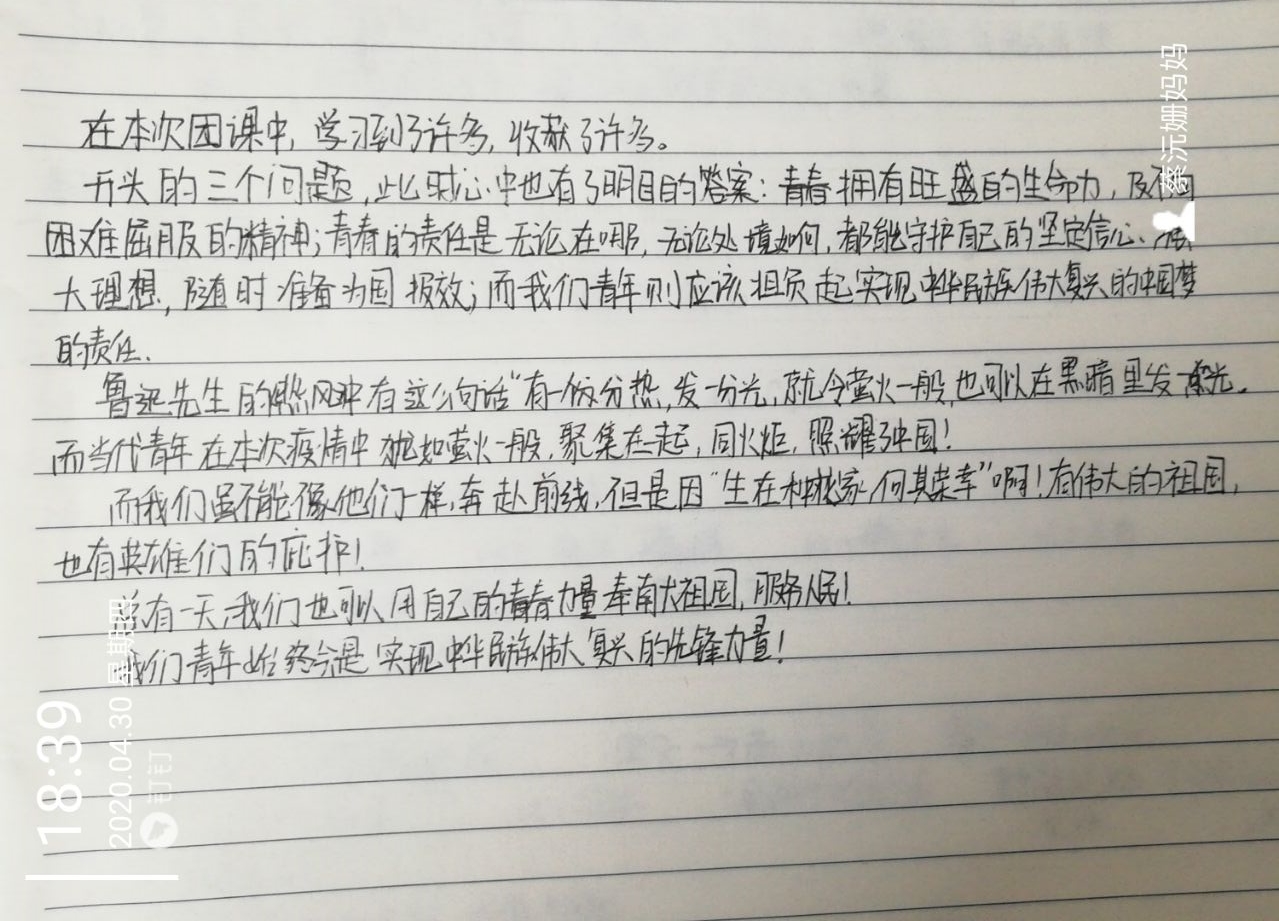 在本次团课中，学习到了许多，收获了许多。
开头的三个问题，此时心中也有了明目的答案：青春拥有旺盛的生命力，及
困难屈服的精神；青春的责任是无论在哪，无论处境如何，都能守护自己的坚定信心、
大理想，随时准备为国报效；而我们青年则应该担负起实现中华民族伟大复兴的中国梦
的责任.
鲁迅先生的热风中有这么句话“有一份分热，发一分光，就令萤火一般，也可以在黑暗里发光.
而当代青年在本次疫情中就如萤火一般，聚集在一起，同火炬，照耀了中国！
而我们虽不能像他们一样，奔赴前线，但是因“生在中华家，何其荣幸”啊！有伟大的祖国，
也有英雄们的庇护！
总有一天，我们也可以用自己的青春力量奉南大祖国，服务人民！
我们青年始终会是实现中华民族伟大复兴的先锋力量！
蔡沅姗妈妈
18:39
2020.04.30 星期四
钉钉